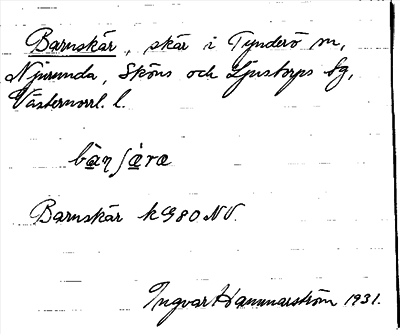 Barnskär, skär i Tynderö sn,
Njurunda, Sköns och Ljustorps tg,
Västernorrl. l.
bà̱ɳʃæ̱̀ræ
Barnskär k G80 NV.
Ingvar Hammarström 1931.